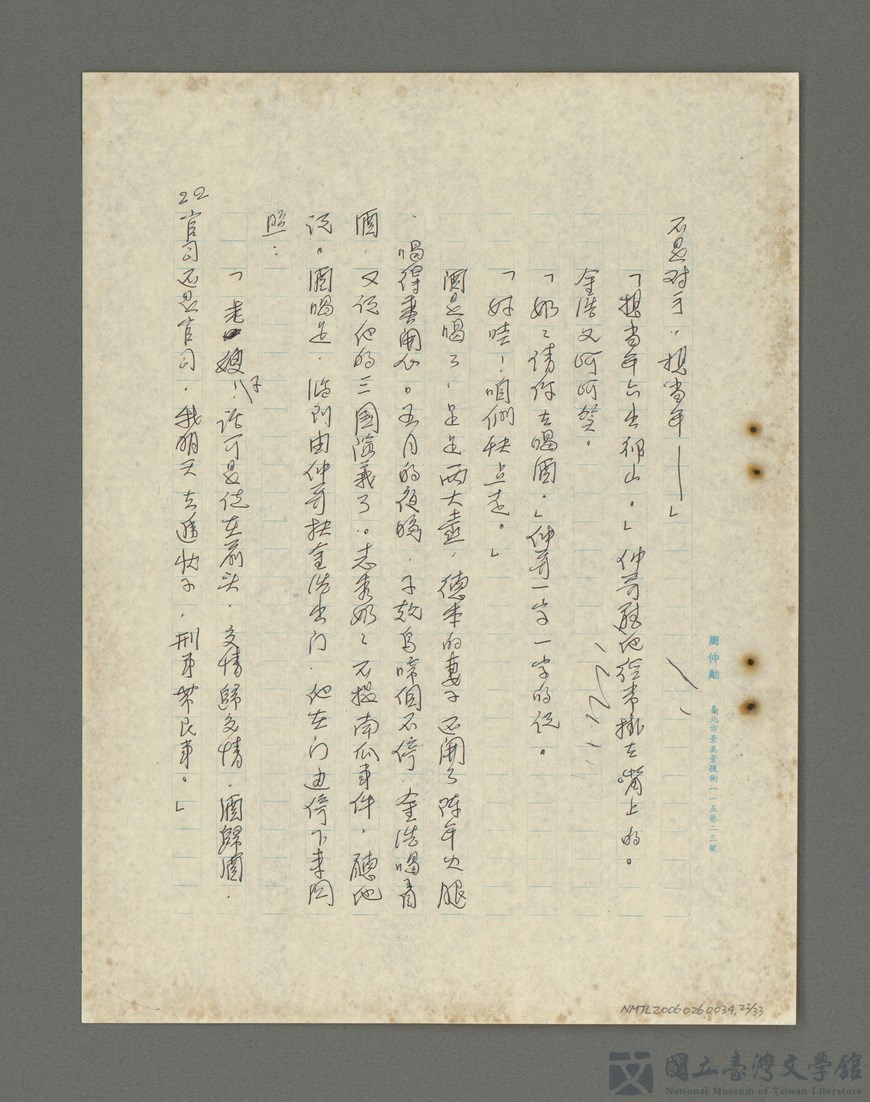 不是对手，想当年——」
「想当年六出祁山。」仲哥替他經常掛在嘴上的。
金浩又呵呵笑。
「奶奶請你去喝酒。」仲哥一字一字的說。
「好哇！咱們快点走。」
酒是喝了，足足兩大壺，德本的妻子還開了陣年火腿
，喝得煞開心。五月的夜晚，子規鳥啼個不停，金浩喝着
酒，又說他的三國演義了。志秀奶奶不提南瓜事件，聽他
說。酒喝足，臨別由仲哥扶金浩出门，他在门边停下来関
照：
「老嫂子！話可是說在前头，交情歸交情，酒歸酒，
官司还是官司，我明天去遞狀子，刑事帶民事。」
22
周仲勛 臺北市景美景後街一一五巷二三號
NMTL20060260034, 22/33
國立臺灣文學館
National Museum of Taiwan Literature